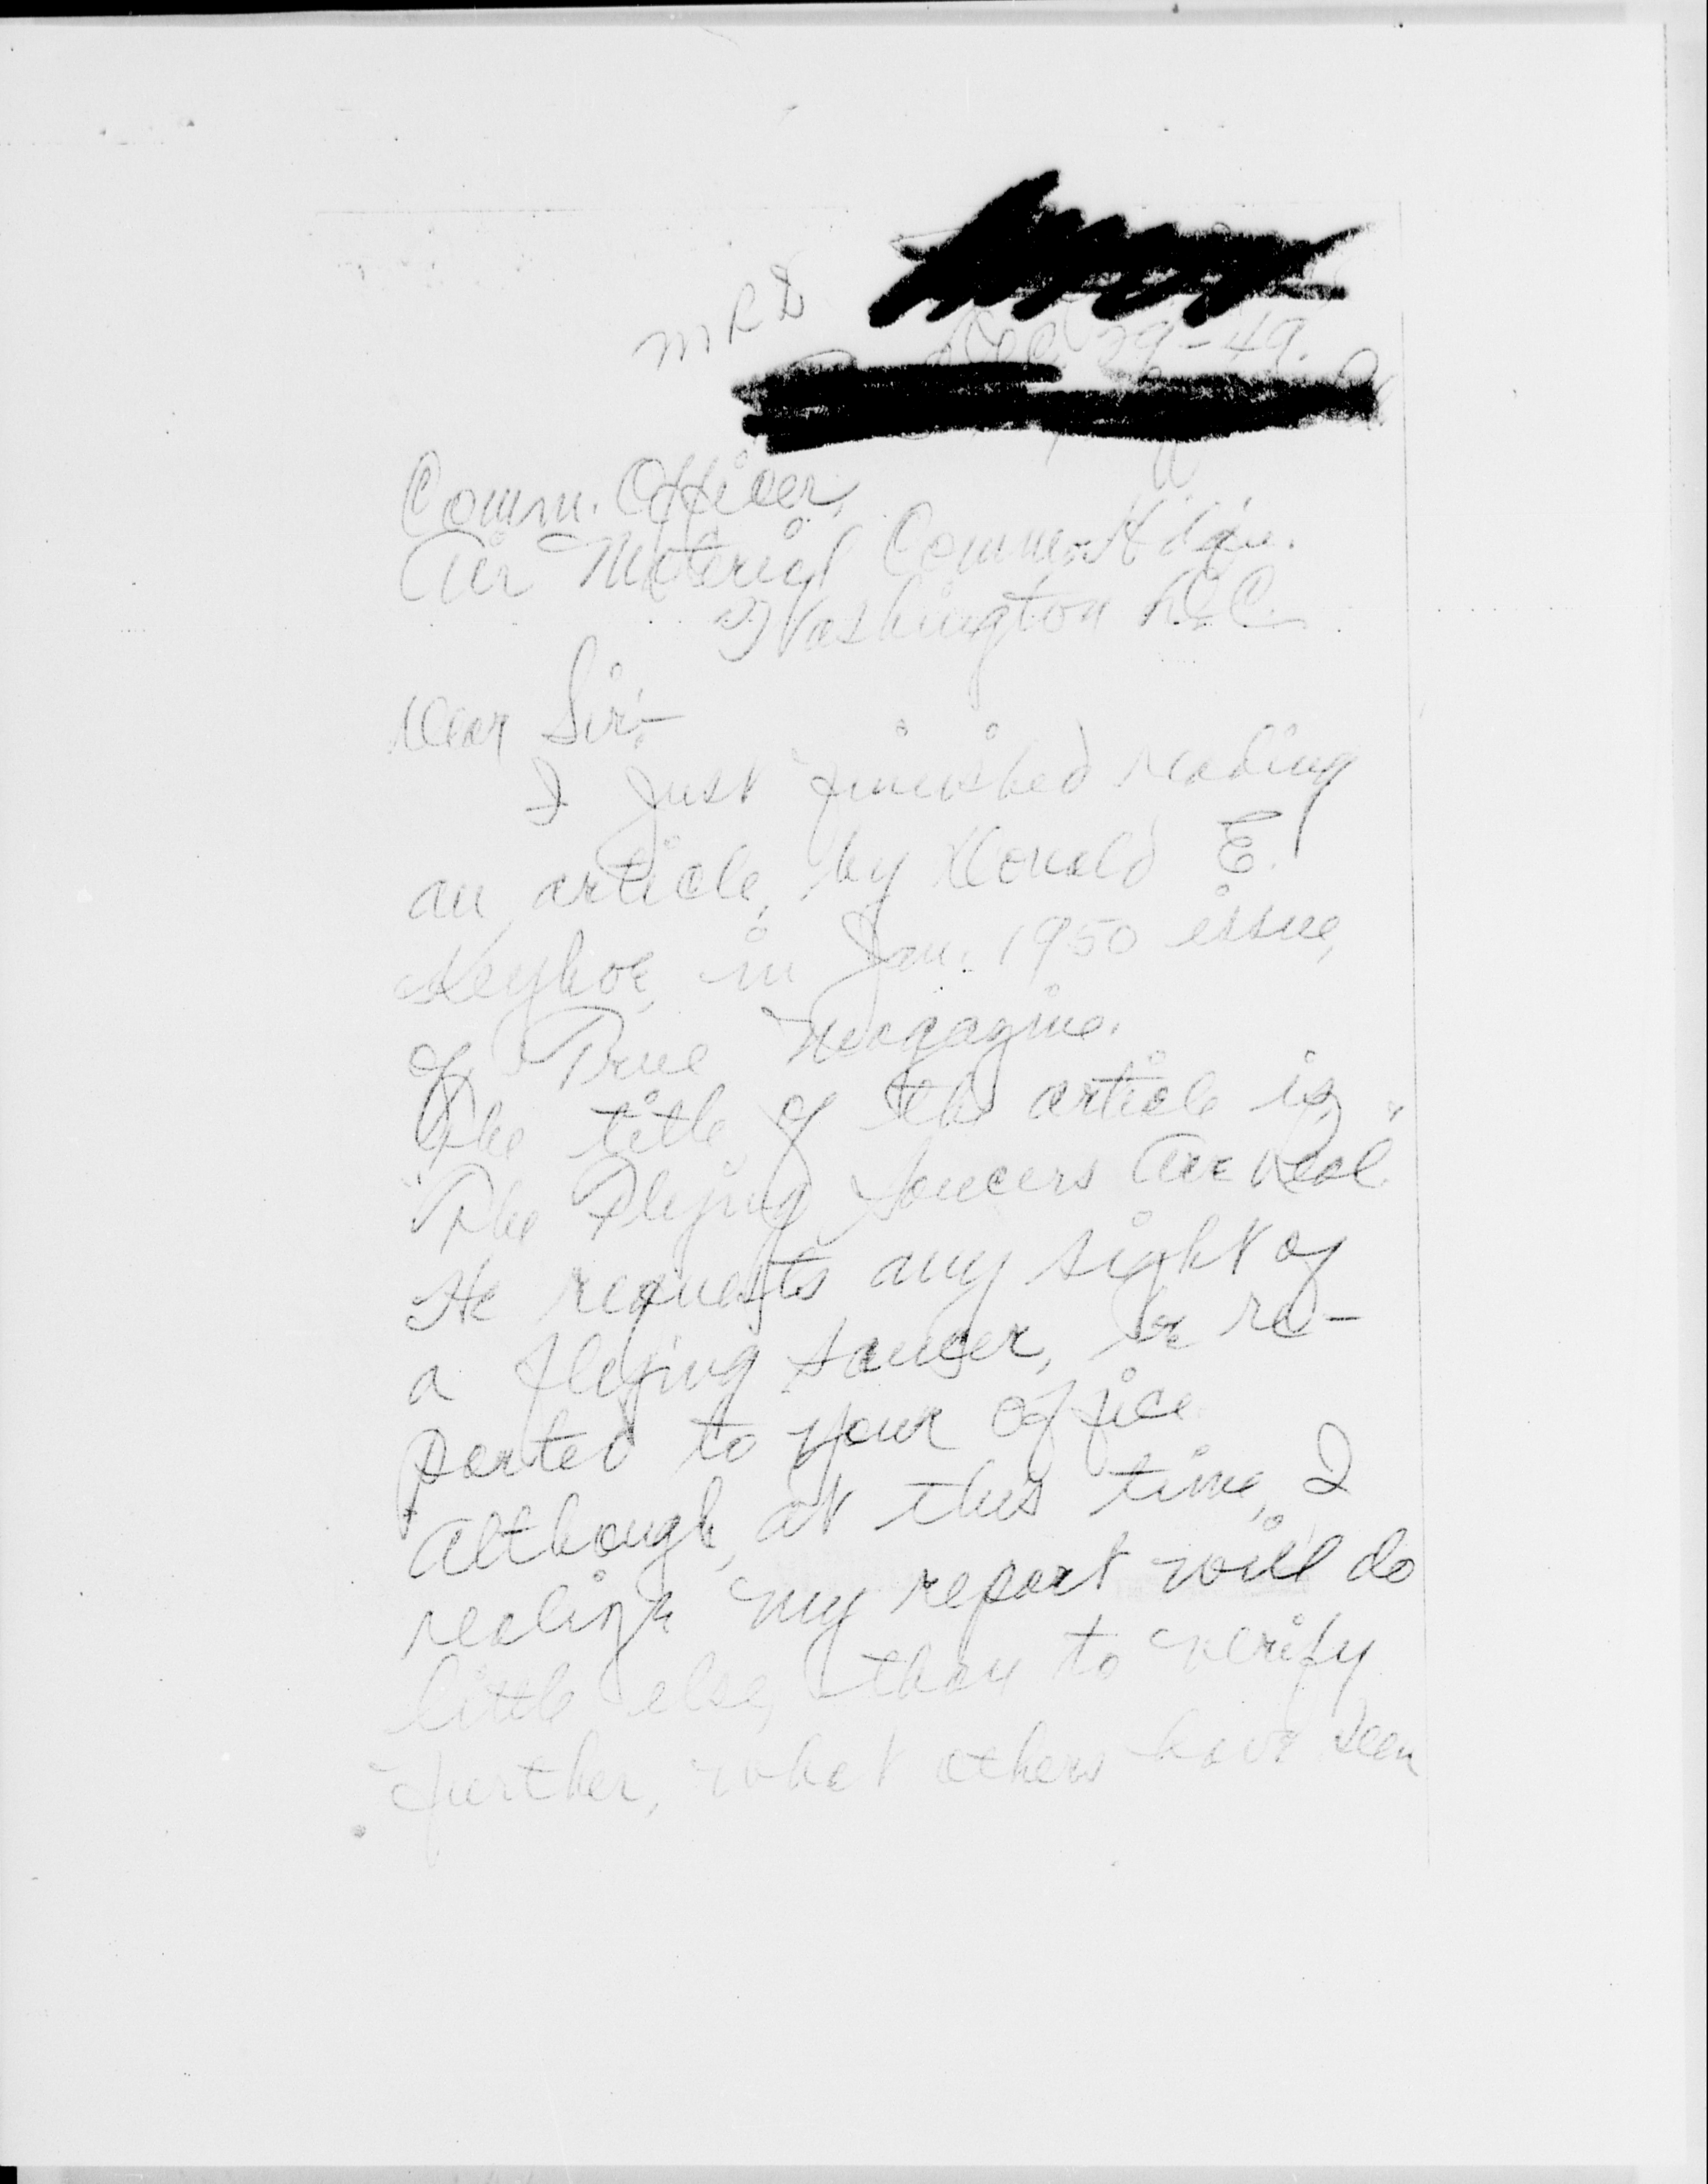 MRD
Dec 29-49.
Comm. Officer,
Air Material Comm. Hdqu.
Washington D.C.
Dear Sir:-
I just finished reading
an article, by Donald E.
Keyhoe, in Jan. 1950 issue,
of True Magazine.
The title of the article is,
"The Flying Saucers Are Real."
He requests any sight of
a flying saucer, be re-
ported to your office.
Although, at this time, I
realize my report will do
little else, than to verify
further, what others have seen